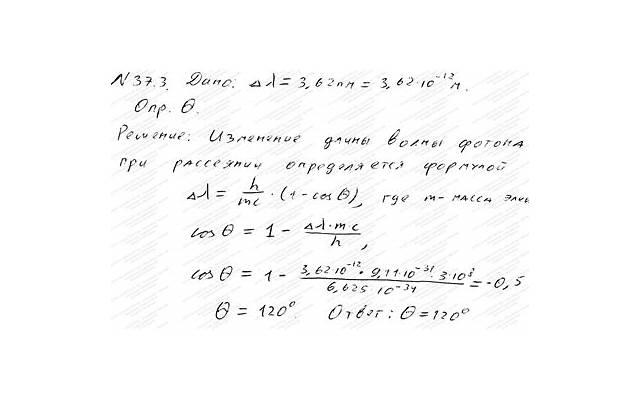 N 37.3. Дано: Δλ = 3,62пм = 3,62·10⁻¹²м.
Опр. θ.
Решение: Изменение длины волны фотона
при рассеянии определяется формулой
Δλ = h/mc · (1 - cosθ), где m - масса элек
cosθ = 1 - Δλ·m·c/h,
cosθ = 1 - 3,62·10⁻¹²·9,11·10⁻³¹·3·10⁸/6,625·10⁻³⁴ = -0,5
θ = 120⁰. Ответ: θ = 120⁰